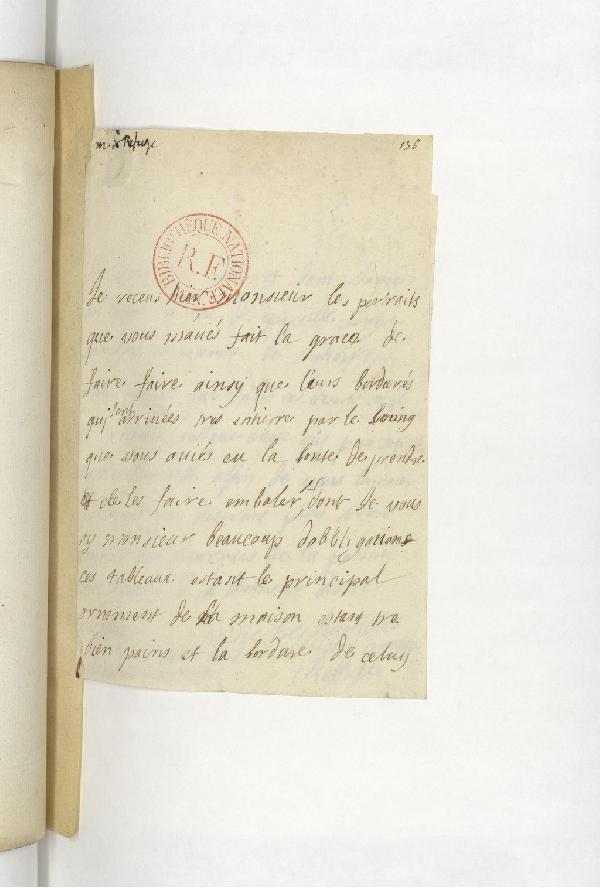 m. de Refuge
136
BIBLIOTHÈQUE NATIONALE
R.F.
Je receus hier monsieur les portraits
que vous mavés fait la grace de
faire faire ainsy que leurs bordures
quj sont arrivées tres entierre par le soing
que vous aviés eu la bonte de prendre
et de les faire embaler, dont Je vous
ay monsieur beaucoup dobbligations
ces tableaux estant le principal
ornement de la maison estant tre
bien pains et la bordure de celuy